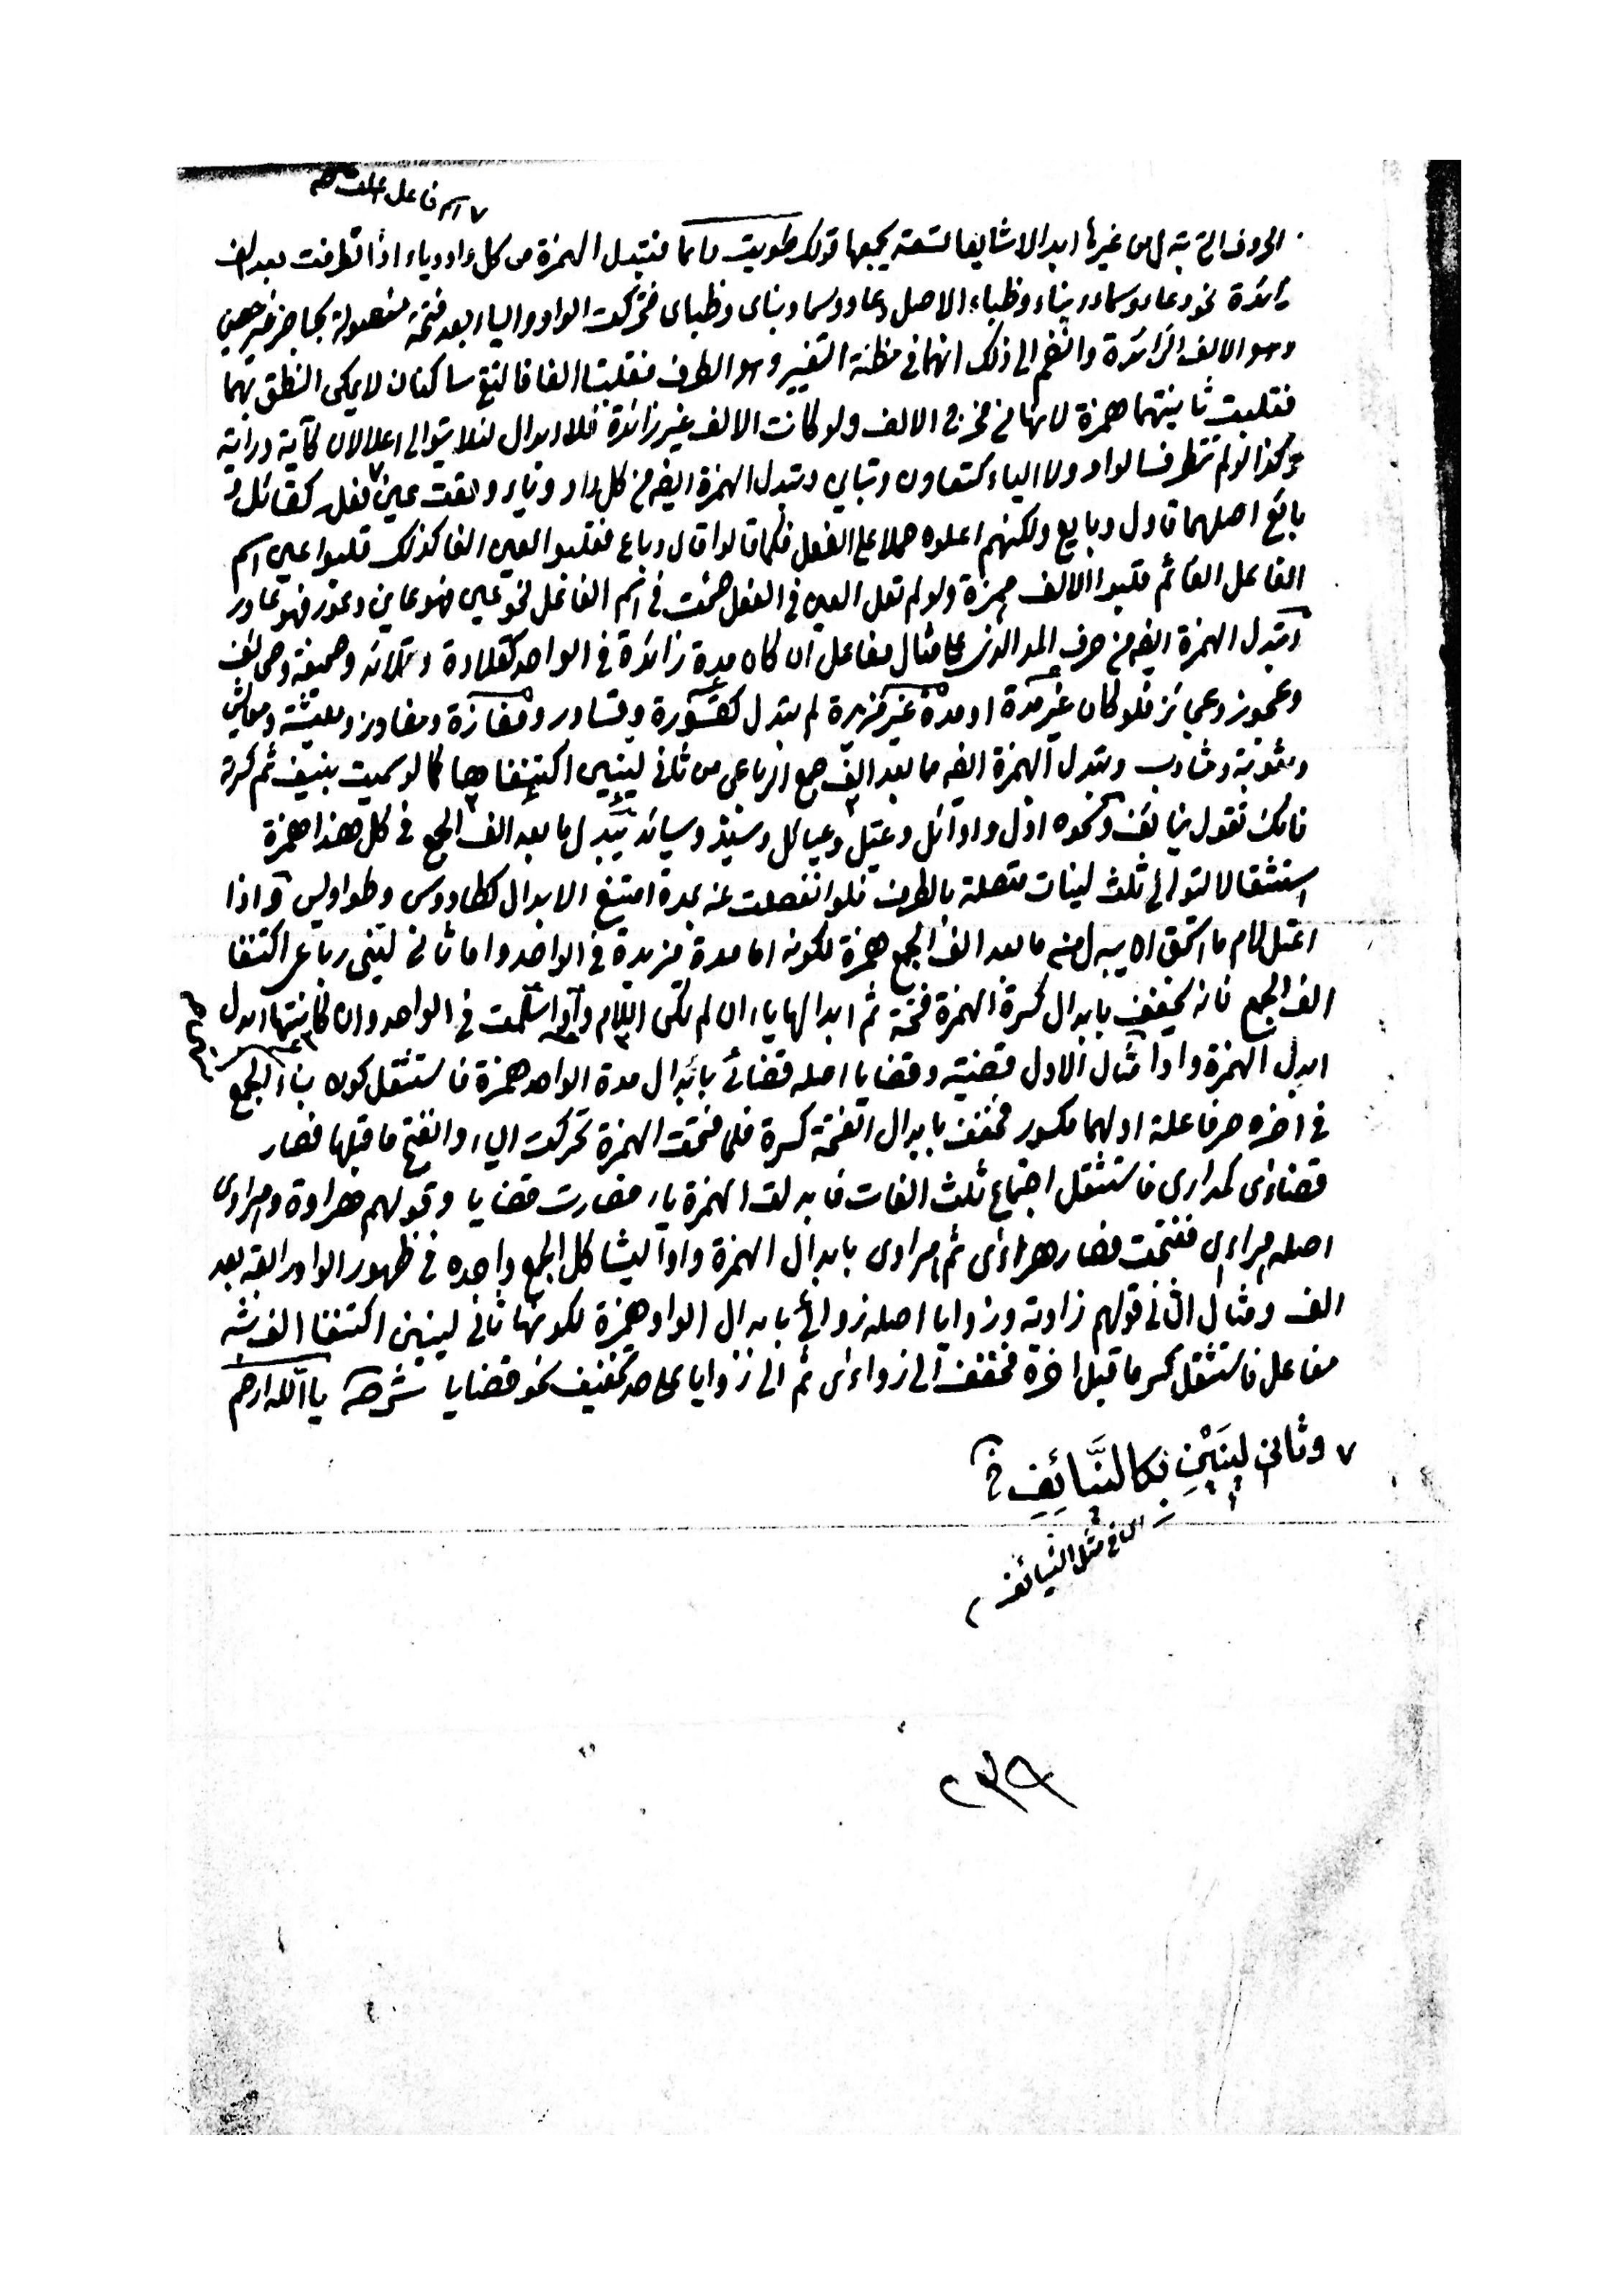 ٧ اسم فاعل
الحروف التى تبدل من غيرها ابدالا شايعا تسعة يجمعها قولك طويت دائما فتبدل الهمزة من كل واو وياء اذا تطرفت بعد الف
زائدة نحو دعاء وسماء وبناء وظباء الاصل دعاو وسماو وبناى وظباى فتحركت الواو والياء بعد فتحة مفصولة بحاجز غير حصين
وهو الالف الزائدة وانضم الى ذلك انهما فى مظنة التغيير وهو الطرف فقلبتا الفا فالتقى ساكنان لا يمكن النطق بهما
فقلبت ثانيتهما همزة لانها من مخرج الالف ولو كانت الالف غير زائدة فلا ابدال لئلا يتوالى اعلالان كآية وراية
وكذا لو لم تتطرف الواو ولا الياء كتعاون وتباين وتبدل الهمزة ايضا من كل واو وياء وقعت عين فعل كقائل و
بائع اصلهما قاول وبايع ولكنهم اعلوه حملا على الفعل فكما قالوا قال وباع فقلبوا العين الفا كذلك قلبوا عين اسم
الفاعل الفا ثم قلبوا الالف همزة ولو لم تعل العين فى الفعل صحت فى اسم الفاعل نحو عين فهو عاين وعور فهو عاور
وتبدل الهمزة ايضا من حرف المد الذى على مثال مفاعل ان كان مدة زائدة فى الواحد كقلادة وقلائد وصحيفة وصحائف
وعجوز وعجائز فلو كان غير مدة او مدة غير مزيدة لم يبدل كقسورة وقساور ومفازة ومفاوز ومعيشة ومعايش
ومثوبة ومثاوب وتبدل الهمزة ايضا مما بعد الف جمع الرباعى من ثانى لينين اكتنفاها كما لو سميت بنيف ثم كسرته
فانك تقول نيائف ونحوه اول واوائل وعيل وعيائل وسيد وسيائد يبدل ما بعد الف الجمع فى كل هذا همزة
استثقالا لتوالى ثلث لينات متصلة بالطرف فلو انفصلت عنه بمدة امتنع الابدال كطاووس وطواويس واذا
اعتل لام ما استحق ان يبدل منه ما بعد الف الجمع همزة لكونه اما مدة مزيدة فى الواحد واما ثانى لينى رباعى اكتنفا
الف الجمع فانه يخفف بابدال كسرة الهمزة فتحة ثم ابدالها ياء ان لم تكن اللام واوا سلمت فى الواحد وان كانتها ابدل
ابدل الهمزة واوا مثال الاول قضية وقضايا اصله قضائى بابدال مدة الواحد همزة فاستثقل كون بناء الجمع
فى اخره حرفا علة اولهما مكسور فخفف بابدال الفتحة كسرة فلما فتحت الهمزة تحركت الياء وانفتح ما قبلها فصار
قضاءى كمدارى فاستثقل اجتماع ثلث الفات فابدلت الهمزة ياء فصارت قضايا وقولهم هراوة وهراوى
اصله هرائى ففتحت فصار هراءى ثم هراوى بابدال الهمزة واوا ليشاكل الجمع واحده فى ظهور الواو رابعة بعد
الف ومثال الثانى قولهم زاوية وزوايا اصله زوائى بابدال الواو همزة لكونها ثانى لينين اكتنفا الف شبه
مفاعل فاستثقل كسر ما قبل اخره فخفف الى زواءى ثم الى زوايا على حد تخفيف نحو قضايا شرحه يا الله ارحم
٧ وثانى لينين بكالنيائف
اى فى مثل النيائف